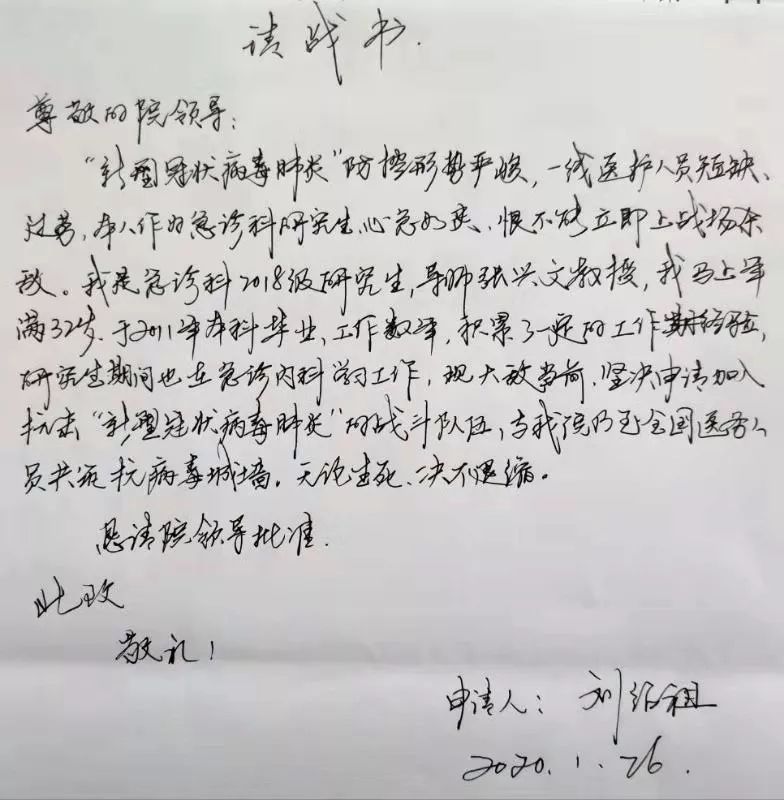 请战书.
尊敬的院领导：
“新型冠状病毒肺炎”防控形势严峻，一线医护人员短缺、
过劳，本人作为急诊科研究生，心急如焚，恨不能立即上战场杀
敌。我是急诊科2018级研究生，导师张兴文教授，我马上年
满32岁，于2011年本科毕业，工作数年，积累了一定的工作经验，
研究生期间也在急诊内科学习工作，现大敌当前，坚决申请加入
抗击“新型冠状病毒肺炎”的战斗队伍，与我院乃至全国医务人
员共筑抗病毒城墙。无论生死、决不退缩。
恳请院领导批准.
此致
敬礼！
申请人：刘绍祖
2020.1.26.